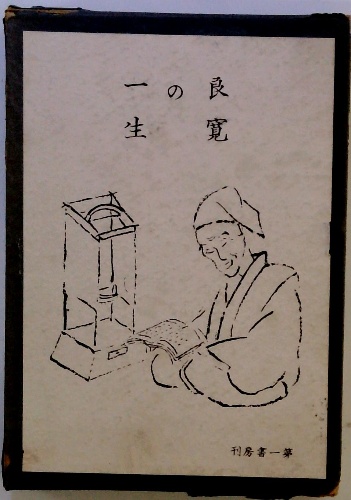 良寛の一生
第一書房刊